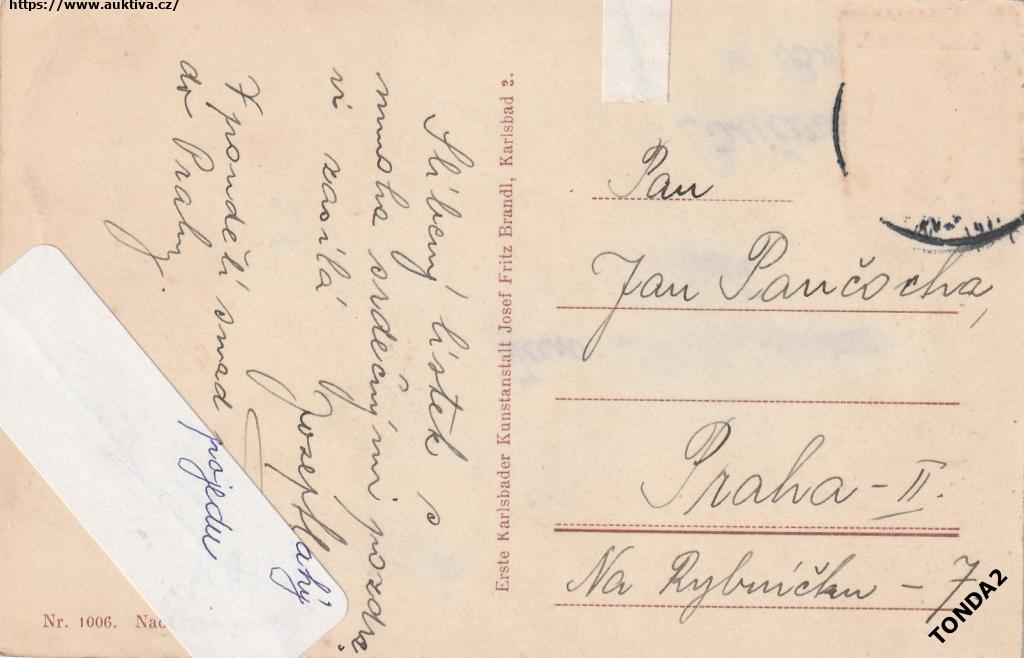 https://www.auktiva.cz/
Slíbený lístek s
mnoha srdečnými pozdra-
vi zasílá Josef Hlahý
V pondělí snad pojedu
do Prahy.
Erste Karlsbader Kunstanstalt Josef Fritz Brandl, Karlsbad 2.
Pan
Jan Pančocha,
Praha - II.
Na Rybníčku - 7
Nr. 1006.
TONDA2